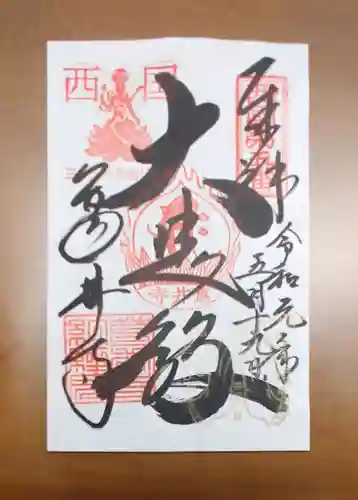 奉拝
令和元年
五月十九日
大悲殿
葛井寺
西国
葛井寺